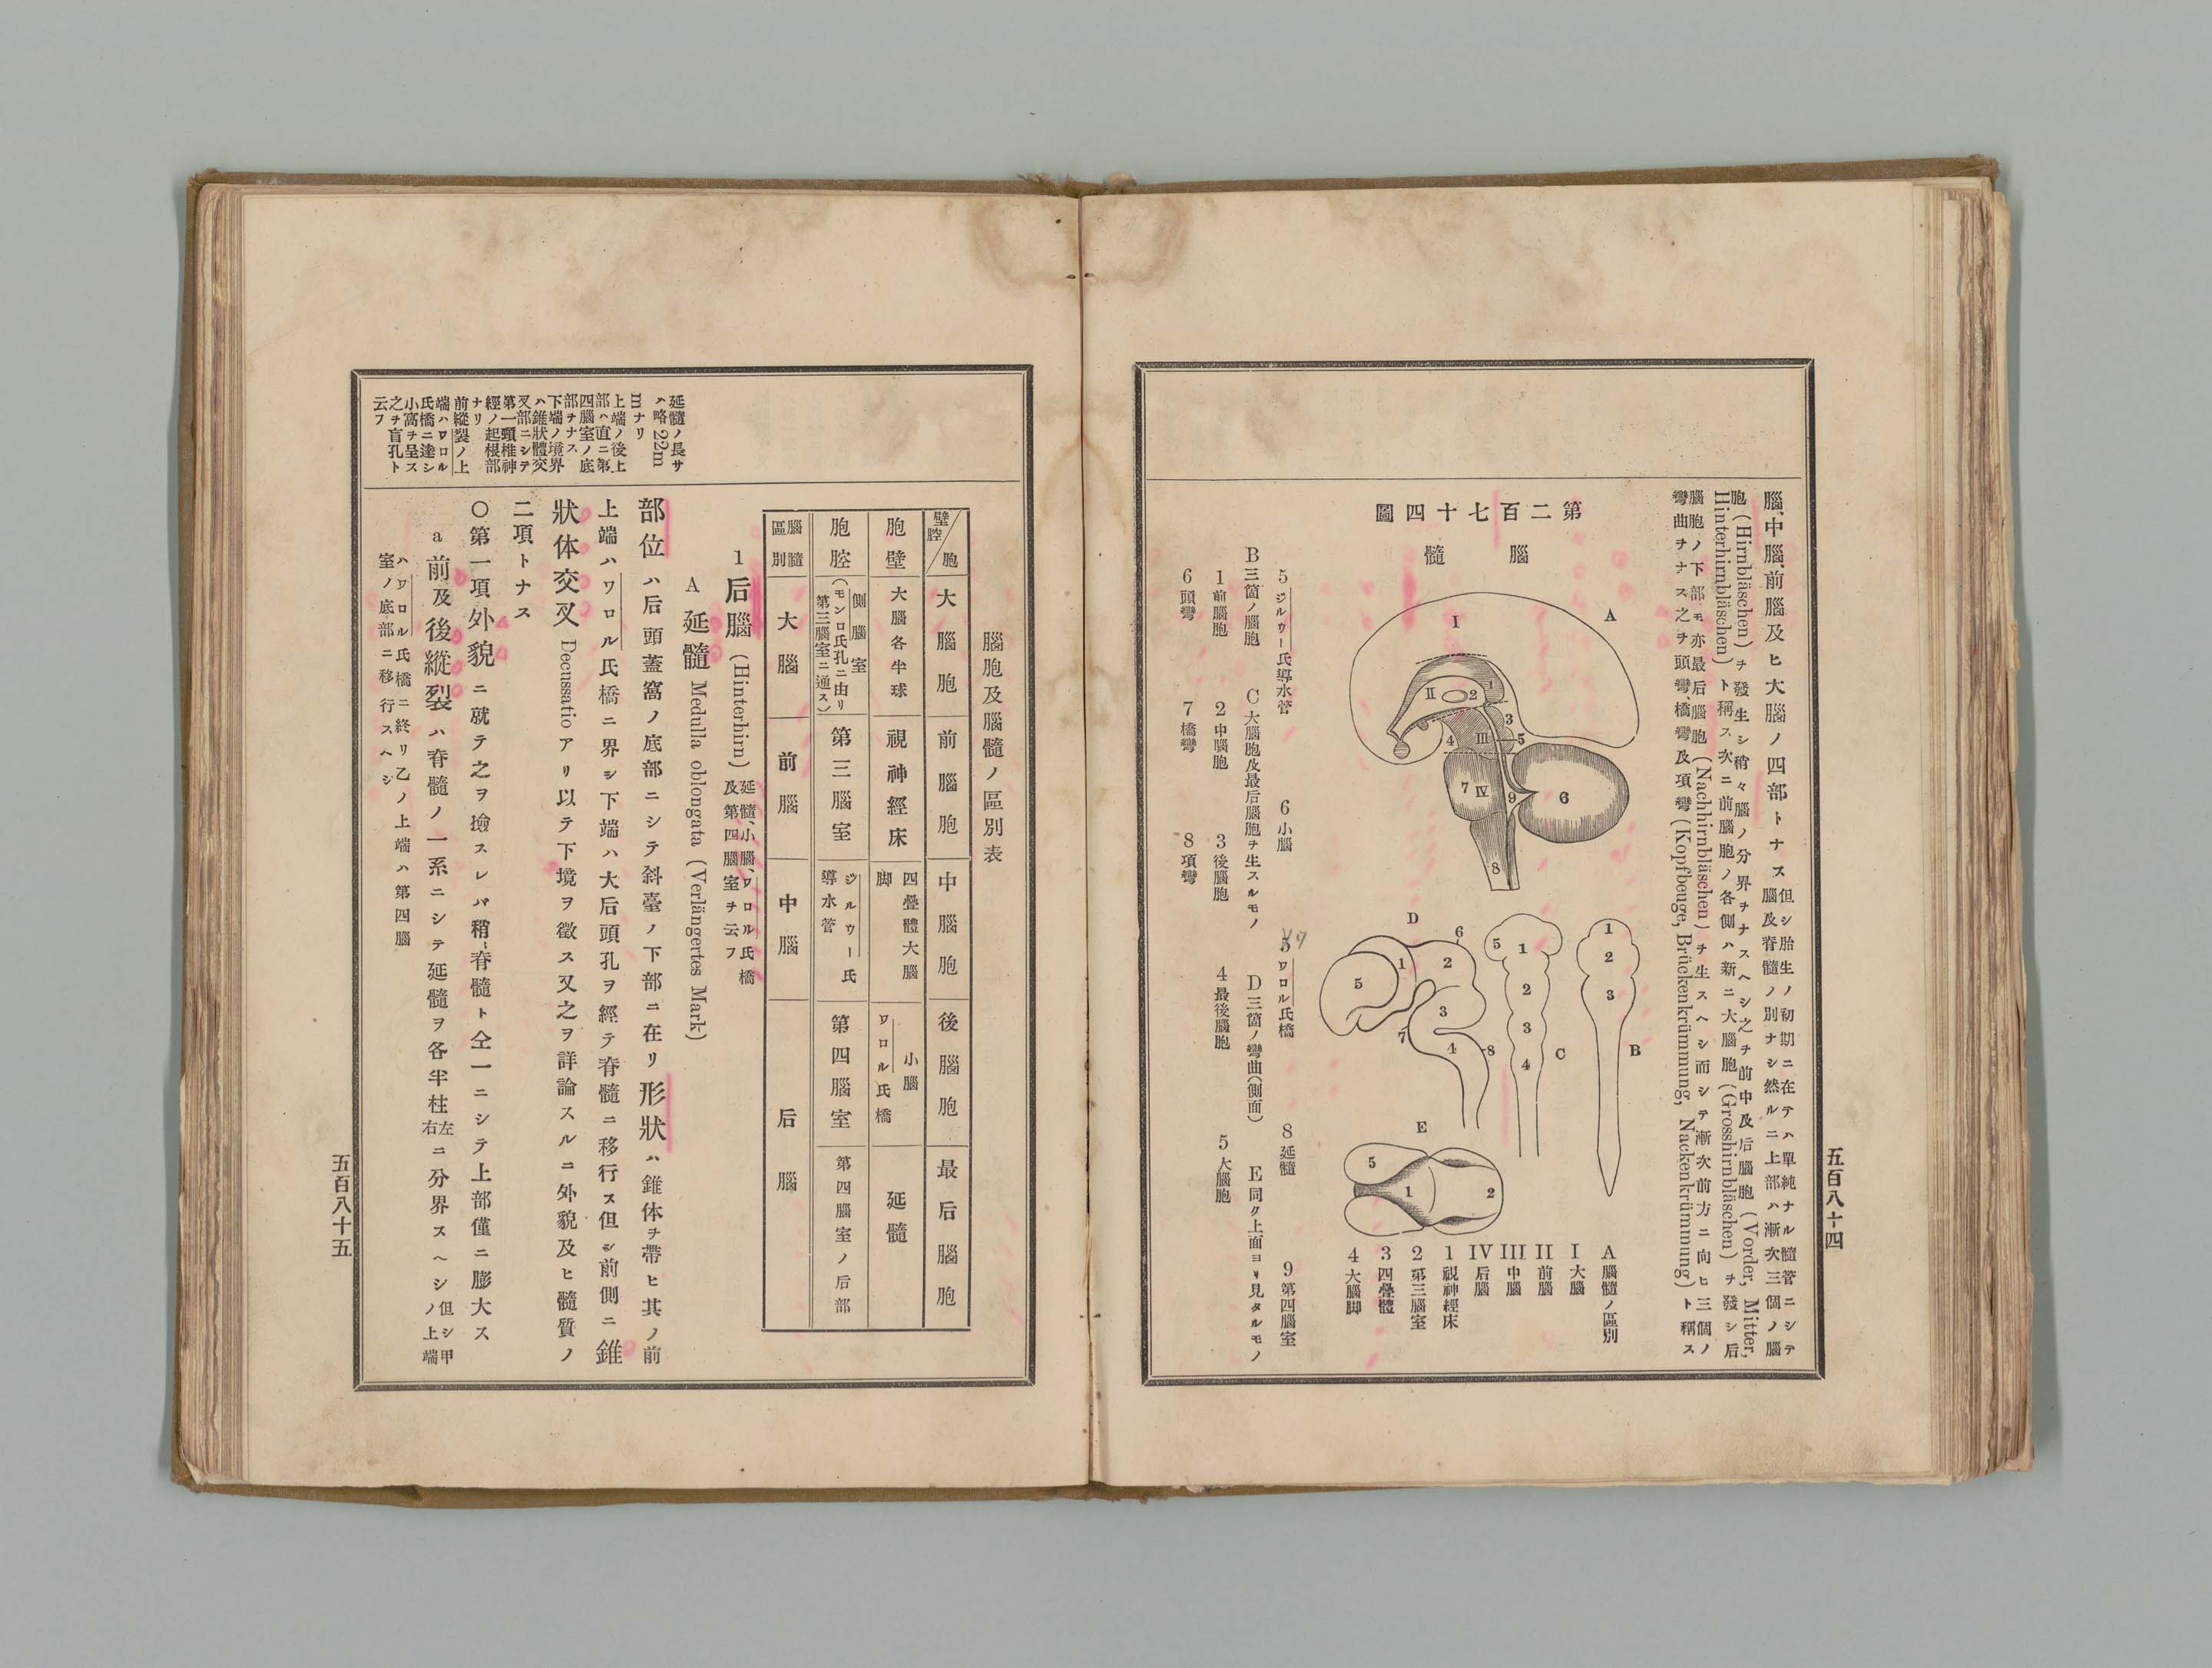 五百八十四
腦、中腦、前腦及ヒ大腦ノ四部トナス
但シ胎生ノ初期ニ在テハ單純ナル髓管ニシテ
腦及脊髓ノ別ナシ然ルニ上部ハ漸次三個ノ腦
胞(Hirnbläschen)ヲ發生シ稍々腦ノ分界ヲナスヘシ之ヲ前中及后腦胞(Vorder, Mitter,
Hinterhirnbläschen)ト稱ス次ニ前腦胞ノ各側ハ新ニ大腦胞(Grosshirnbläschen)ヲ發シ后
腦胞ノ下部モ亦最后腦胞(Nachhirnbläschen)ヲ生スヘシ而シテ漸次前方ニ向ヒ三個ノ
彎曲ヲナス之ヲ頭彎、橋彎及項彎(Kopfbeuge, Brückenkrümmung, Nackenkrümmung)ト稱ス
第二百七十四圖
腦髓
A
I
II
III
IV
1
2
3
4
5
6
7
8
9
B
1
2
3
C
5
1
2
3
4
D
5
1
6
2
3
7
4
8
E
5
1
2
A 腦髓ノ區別
I 大腦
II 前腦
III 中腦
IV 后腦
1 視神經床
2 第三腦室
3 四疊體
4 大腦脚
5 ジルウー氏導水管
6 小腦
7 ワロル氏橋
8 延髓
9 第四腦室
B 三箇ノ腦胞
C 大腦胞及最后腦胞ヲ生スルモノ
D 三箇ノ彎曲(側面)
E 同ク上面ヨリ見タルモノ
1 前腦胞
2 中腦胞
3 後腦胞
4 最後腦胞
5 大腦胞
6 頭彎
7 橋彎
8 項彎
腦胞及腦髓ノ區別表
壁腔/胞
大腦胞
前腦胞
中腦胞
後腦胞
最后腦胞
胞壁
大腦各半球
視神經床
四疊體大腦
脚
小腦
ワロル氏橋
延髓
胞腔
側腦室
(モンロ氏孔ニ由リ
第三腦室ニ通ス)
第三腦室
ジルウー氏
導水管
第四腦室
第四腦室ノ后部
腦髓
區別
大腦
前腦
中腦
后腦
1 后腦(Hinterhirn)
延髓、小腦、ワロル氏橋
及第四腦室ヲ云フ
A 延髓 Medulla oblongata (Verlängertes Mark)
部位ハ后頭蓋窩ノ底部ニシテ斜臺ノ下部ニ在リ形狀ハ錐体ヲ帶ヒ其ノ前
上端ハワロル氏橋ニ界シ下端ハ大后頭孔ヲ經テ脊髓ニ移行ス但シ前側ニ錐
狀体交叉 Decussatio アリ以テ下境ヲ徵ス又之ヲ詳論スルニ外貌及ヒ髓質ノ
二項トナス
○第一項外貌ニ就テ之ヲ撿スレバ稍〻脊髓ト仝一ニシテ上部僅ニ膨大ス
a 前及後縱裂ハ脊髓ノ一系ニシテ延髓ヲ各半柱左右ニ分界スヘシ
但シ甲
ノ上端
ハワロル氏橋ニ終リ乙ノ上端ハ第四腦
室ノ底部ニ移行スヘシ
延髓ノ長サ
ハ略22m
mナリ
上端ノ後上
部ハ直ニ第
四腦室ノ底
部ヲナス
下端ノ境界
ハ錐狀體交
叉部ニシテ
第一頸椎神
經ノ起根部
ナリ
前縱裂ノ上
端ハワロル
氏橋ニ達シ
小窩ヲ呈ス
之ヲ盲孔ト
云フ
五百八十五